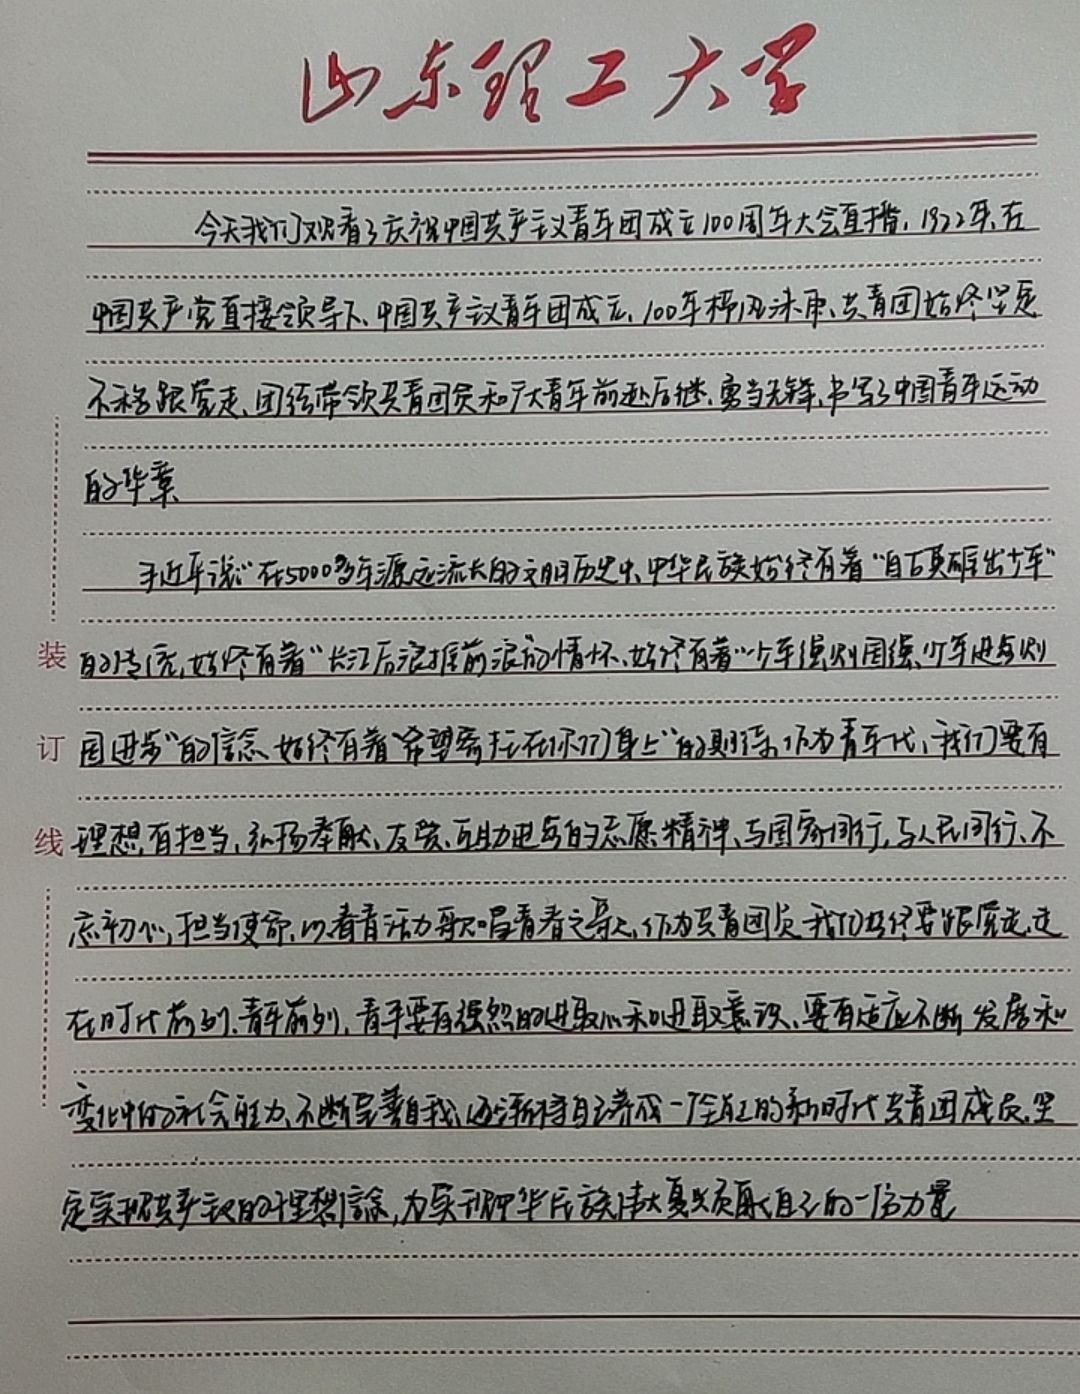 山东理工大学
今天我们观看了庆祝中国共产主义青年团成立100周年大会直播，1922年、在
中国共产党直接领导下、中国共产主义青年团成立、100年栉风沐雨、共青团始终坚定
不移跟党走、团结带领共青团员和广大青年前赴后继、勇当先锋、书写了中国青年运动
的华章、
习近平说“在5000多年源远流长的文明历史中、中华民族始终有着“自古英雄出少年”
的传统，始终有着“长江后浪推前浪”的情怀、始终有着“少年强则国强、少年进步则
国进步”的信念、始终有着“希望寄托在你们身上”的期待、作为青年一代、我们要有
理想、有担当、弘扬奉献、友爱、互助、进步的志愿精神、与国家同行，与人民同行、不
忘初心，担当使命、以青春活力歌唱青春之歌、作为共青团员我们始终要跟党走、走
在时代前列、青年前列，青年要有强烈的进取心和进取意识、要有适应不断发展和
变化中的社会能力、不断完善自我、逐渐将自己养成一个合格的新时代共青团成员、坚
定实现共产主义的理想信念，为实现中华民族伟大复兴贡献自己的一份力量
装
订
线